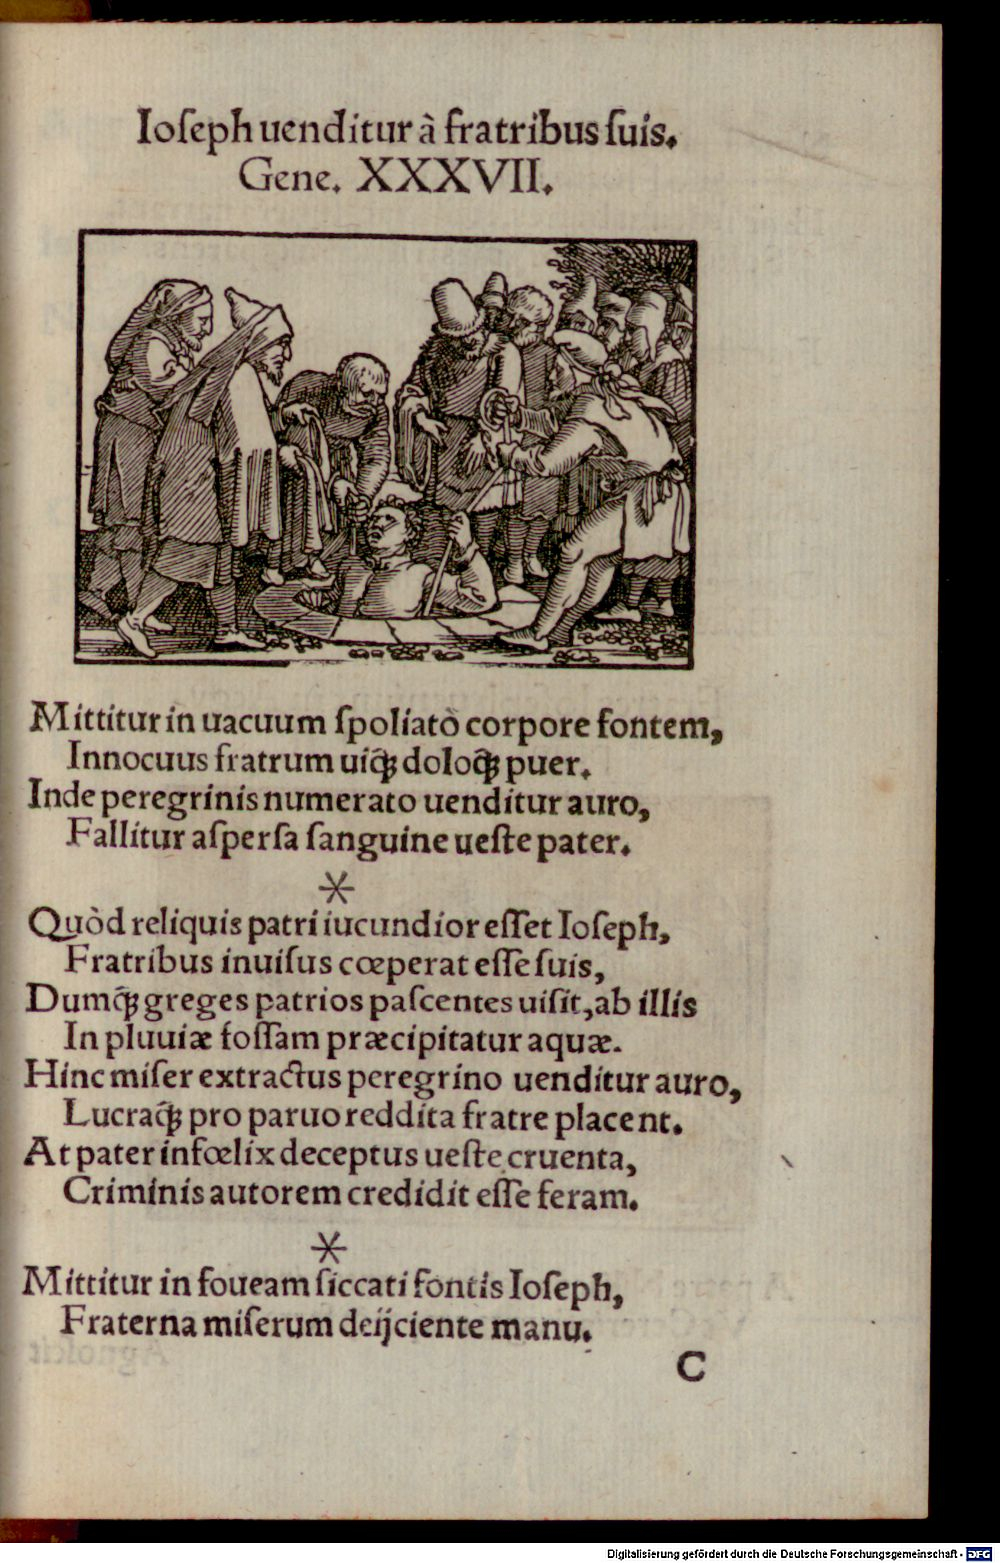 Ioſeph uenditur à fratribus ſuis.
Gene. XXXVII.
Mittitur in uacuum ſpoliatò corpore fontem,
Innocuus fratrum uiq́ꝫ doloq́ꝫ puer.
Inde peregrinis numerato uenditur auro,
Fallitur aſperſa ſanguine ueſte pater.
*
Quòd reliquis patri iucundior eſſet Ioſeph,
Fratribus inuiſus cœperat eſſe ſuis,
Dumq́ꝫ greges patrios paſcentes uiſit, ab illis
In pluuiæ foſſam præcipitatur aquæ.
Hinc miſer extractus peregrino uenditur auro,
Lucraq́ꝫ pro paruo reddita fratre placent.
At pater infœlix deceptus ueſte cruenta,
Criminis autorem credidit eſſe feram.
*
Mittitur in foueam ſiccati fontis Ioſeph,
Fraterna miſerum deijciente manu.
C
Digitalisierung gefördert durch die Deutsche Forschungsgemeinschaft - DFG